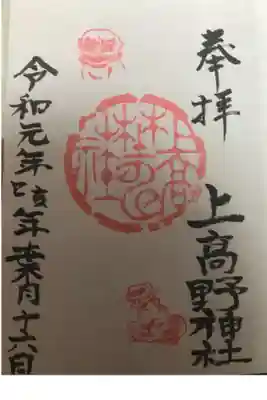 奉拝
上高野神社
令和元年己亥年葉月十六日